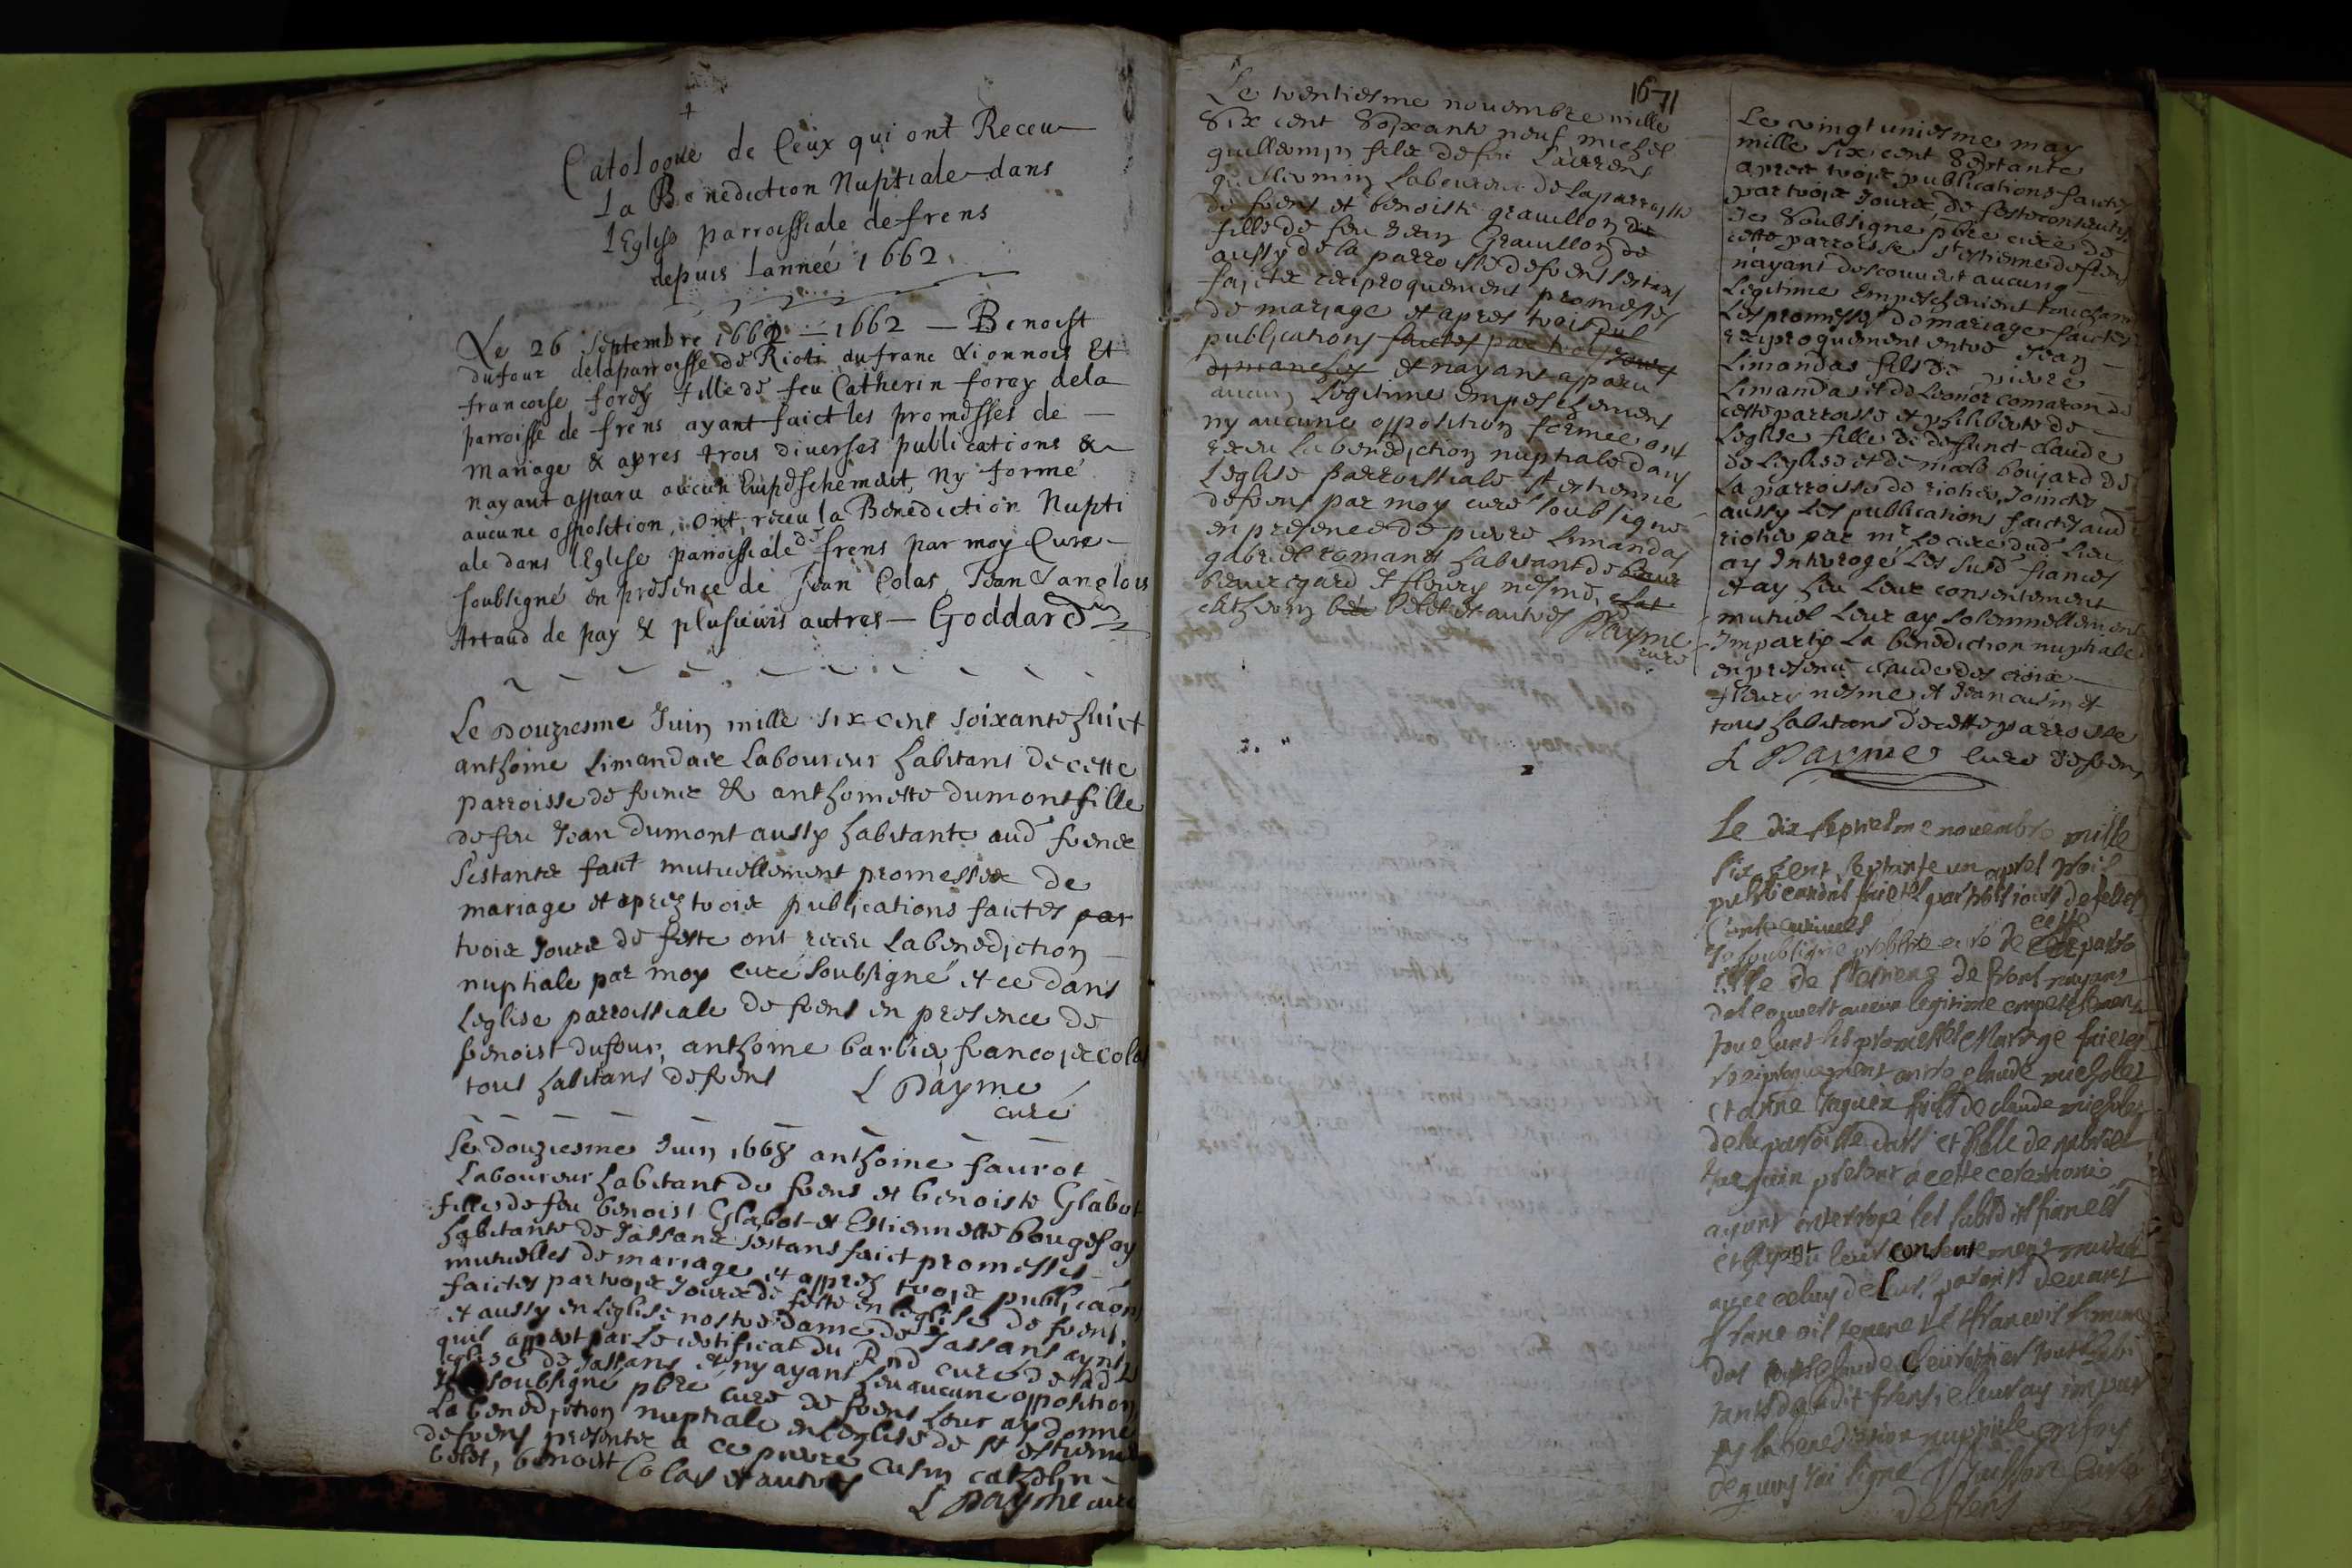 +
Catologue de Ceux qui ont Receu
La Benediction Nuptiale dans
LEglise parroissiale de frens
depuis Lannéé 1662
Le 26 Septembre 1662 — 1662 — Benoist
dufour delaparroisse de Rioti du franc Lionnois Et
francoise forey fille de feu Catherin forey dela
parroisse de frens ayant faict les promesses de
Mariage & apres trois diverses publications &
nayant apparu aucun Empeschement Ny formé
aucune opposition, ont receu la Benediction Nupti
ale dans lEglise parroissiale de frens par moy Cure
soubsigné en presence de Jean Colas, Jean Langlois
Artaud de pay & plusieuis autres — Goddard
Le Douziesme Juin mille six cent soixante huict
anthoine Limandaie Laboureur habitant de cette
parroisse de frence & anthomette dumont fille
de feu Jean dumont aussy habitante aud frence
sestante faut mutuellement promesses de
mariage et aprez trois publications faictes par
trois Jours de feste ont receu la benediction
nuptiale par moy curé soubsigné et ce dans
Leglise parroissiale de frens en presence de
benoist dufour, anthoine barbier francois colas
tous habitans de frens L Payme
curé
Le douziesme Juin 1668 anthoine faurot
Laboureur habitant de frens et benoiste Glabot
fille de feu benoist Glabot et Estiennette
habitante de Jassans sestans faict promesses
mutuelles de mariage et apprez trois publicaōn
faictes par trois Jours de feste en leglise de frens
et aussy en leglise nostre dame de Jassans aynsy
quil appert par le certificat du Rnd curé de lad
eglise de Jassans et ny ayant heu aucune opposition
soubsigné pbre curé de frens leur ay donné
la benediction nuptiale en leglise de st estienne
de frens presente a ce pierre cusin catherin
belet, benoist Colas et autres
L Payme curé
1671
Le trentiesme nouembre mille
Six cent Soixante neuf michel
guillermin fils de feu Laurens
guillermin Laboureur de la parroisse
de frens et benoiste grauillon dit
fille de feu Jean Grauillon de
aussy de la parroisse de frens sestans
faicte reciproquement promesses
de mariage et apres trois pub
publications faictes par trois Jours
dimanches et nayant apparu
aucun Legitime empeschement
ny aucune opposition formée ont
receu la benediction nuptiale dans
Leglise parroissiale st estienne
de frens par moy curé soubsigné
en presence de pierre Limandas
gabriel romand habitant de beau
beauregard et fleury nesme,
catherin belet et autres Payme
curé
Le vingt uniesme may
mille six cent Septante
apres trois publications faictes
par trois Jours de feste consecutifs
Je Soubsigné pbre curé de
cette parroisse st estienne de frens
nayant descouuert aucung
Legitime Empeschement touchant
Les promesses de mariage faictes
reciproquement entre Jean
Limandas fils de pierre
Limandas et de Leonor comaron de
cette parroisse et philiberte de
Leglise fille de defunct claude
de Leglise et de nicole boujard de
La parroisse de riotier, Joincte
aussy Les publications faictes aud
riotier par mr Le curé dud Lieu
ay Interrogé Les susd fiancés
et ay heu Leur consentement
mutuel Leur ay solemnellement
Imparty La benediction nuptiale
en presence claude des croix
fleury nesme et Jean cusin et
tous habitans de cette parroisse
L Payme curé de frens
Le dix septiesme novembre mille
six cent septante un apres trois
publications faictes par trois jours de festes
consecutiues
Je soubsigné prebstre curé de cette parro
isse de st estiene de frens nayant
descouuert aucun legitime empeschement
touchant les promesses de Mariage faictes
reciproquement entre claude micholet
et anne fils de claude micholet
de la parroisse dars et fille de
present a cette ceremonie
ayant interrogé les susdit fiancés
et leur consentement mutuel
auec celuy de leurs parens deuant
francois et francois liman
das claude tous habi
tants dudit frens ie leur ay impar
ty la benediction nuptiale en foy
dequoy iai signé curé
de frens